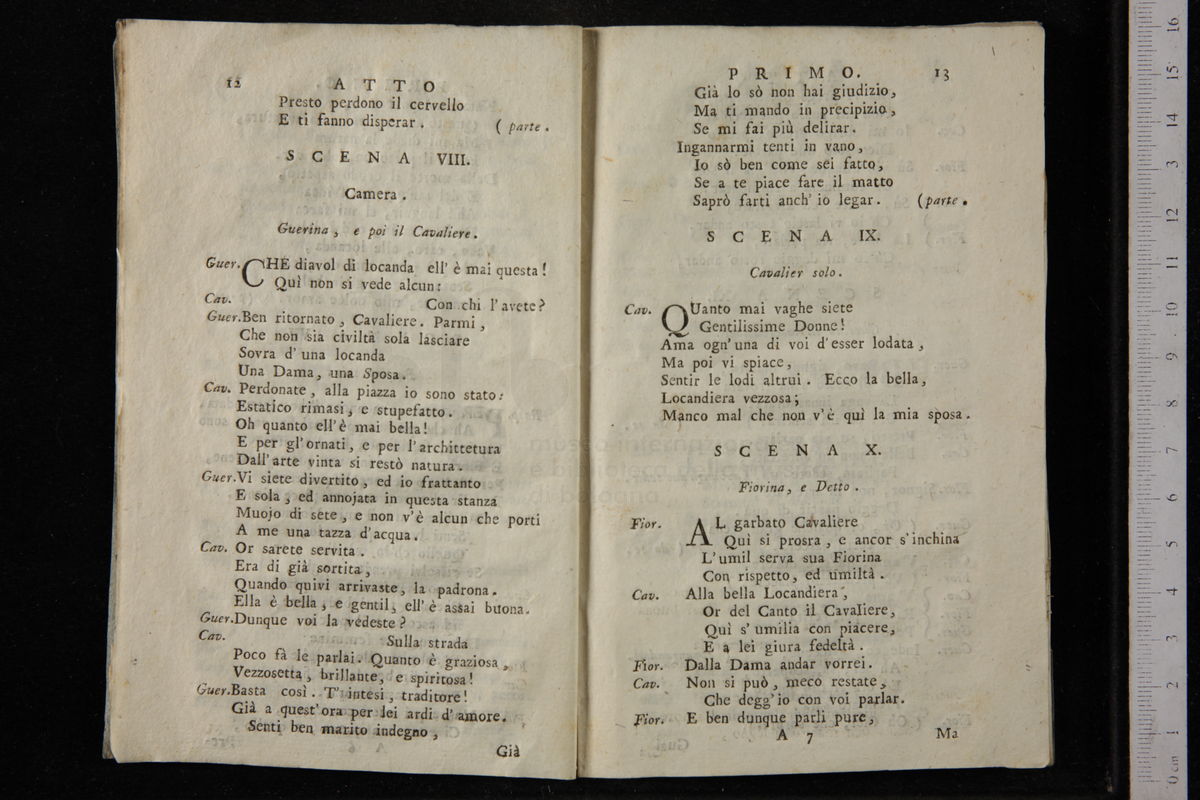 12 ATTO
Presto perdono il cervello
E ti fanno disperar . ( parte .
SCENA VIII.
Camera .
Guerina , e poi il Cavaliere .
Guer. CHE diavol di locanda ell' è mai questa !
Quì non si vede alcun :
Cav. Con chi l'avete ?
Guer. Ben ritornato , Cavaliere . Parmi ,
Che non sia civiltà sola lasciare
Sovra d' una locanda
Una Dama , una Sposa .
Cav. Perdonate , alla piazza io sono stato :
Estatico rimasi , e stupefatto .
Oh quanto ell'è mai bella !
E per gl' ornati , e per l'archittetura
Dall' arte vinta si restò natura .
Guer. Vi siete divertito , ed io frattanto
E sola , ed annojata in questa stanza
Muojo di sete , e non v'è alcun che porti
A me una tazza d'acqua .
Cav. Or sarete servita .
Era di già sortita ,
Quando quivi arrivaste , la padrona .
Ella è bella , e gentil , ell' è assai buona .
Guer. Dunque voi la vedeste ?
Cav. Sulla strada
Poco fà le parlai . Quanto è graziosa ,
Vezzosetta , brillante , e spiritosa !
Guer. Basta così . T' intesi , traditore !
Già a quest' ora per lei ardi d' amore .
Senti ben marito indegno ,
Già
PRIMO. 13
Già lo sò non hai giudizio ,
Ma ti mando in precipizio ,
Se mi fai più delirar .
Ingannarmi tenti in vano ,
Io sò ben come sei fatto ,
Se a te piace fare il matto
Saprò farti anch' io legar . ( parte .
SCENA IX.
Cavalier solo .
Cav. QUanto mai vaghe siete
Gentilissime Donne !
Ama ogn' una di voi d'esser lodata ,
Ma poi vi spiace ,
Sentir le lodi altrui . Ecco la bella ,
Locandiera vezzosa ;
Manco mal che non v'è quì la mia sposa .
SCENA X.
Fiorina , e Detto .
Fior. AL garbato Cavaliere
Quì si prosra , e ancor s'inchina
L'umil serva sua Fiorina
Con rispetto , ed umiltà .
Cav. Alla bella Locandiera ,
Or del Canto il Cavaliere ,
Quì s' umilia con piacere ,
E a lei giura fedeltà .
Fior. Dalla Dama andar vorrei .
Cav. Non si può , meco restate ,
Che degg' io con voi parlar .
Fior. E ben dunque parli pure ,
A 7 Ma